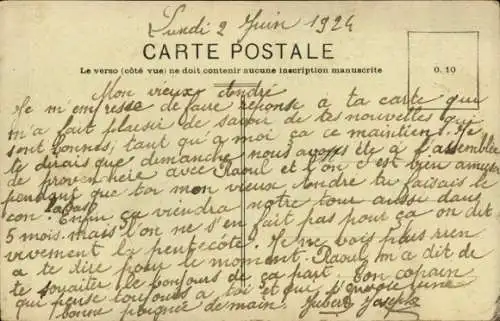 Lundi 2 Juin 1924
CARTE POSTALE
Le verso (côté vue) ne doit contenir aucune inscription manuscrite
0. 10
Mon vieux André
Je m'empresse de faire réponse a ta carte qui
m'a fait plaisir de savoir de tes nouvelles qui
sont bonnes; tant qu'a moi ça ce maintien. Je
te dirais que dimanche nous avons été a l'assemblée
de provenchère avec Raoul et l'on c'est bien amuser
pendant que toi mon vieux Andre tu faisais le
con labas! Enfin ça viendra notre tour aussi dans
5 mois. mais l'on ne s'en fait pas pour ça on dit
vivement la pentecôte. Je ne vois plus rien
a te dire pour le moment. Raoul m'a dit de
te souaiter le bonjours de ça part. Ton copain
qui pense toujours a toi et qui t'envoie une
bonne poignée de main. Hubert Joseph